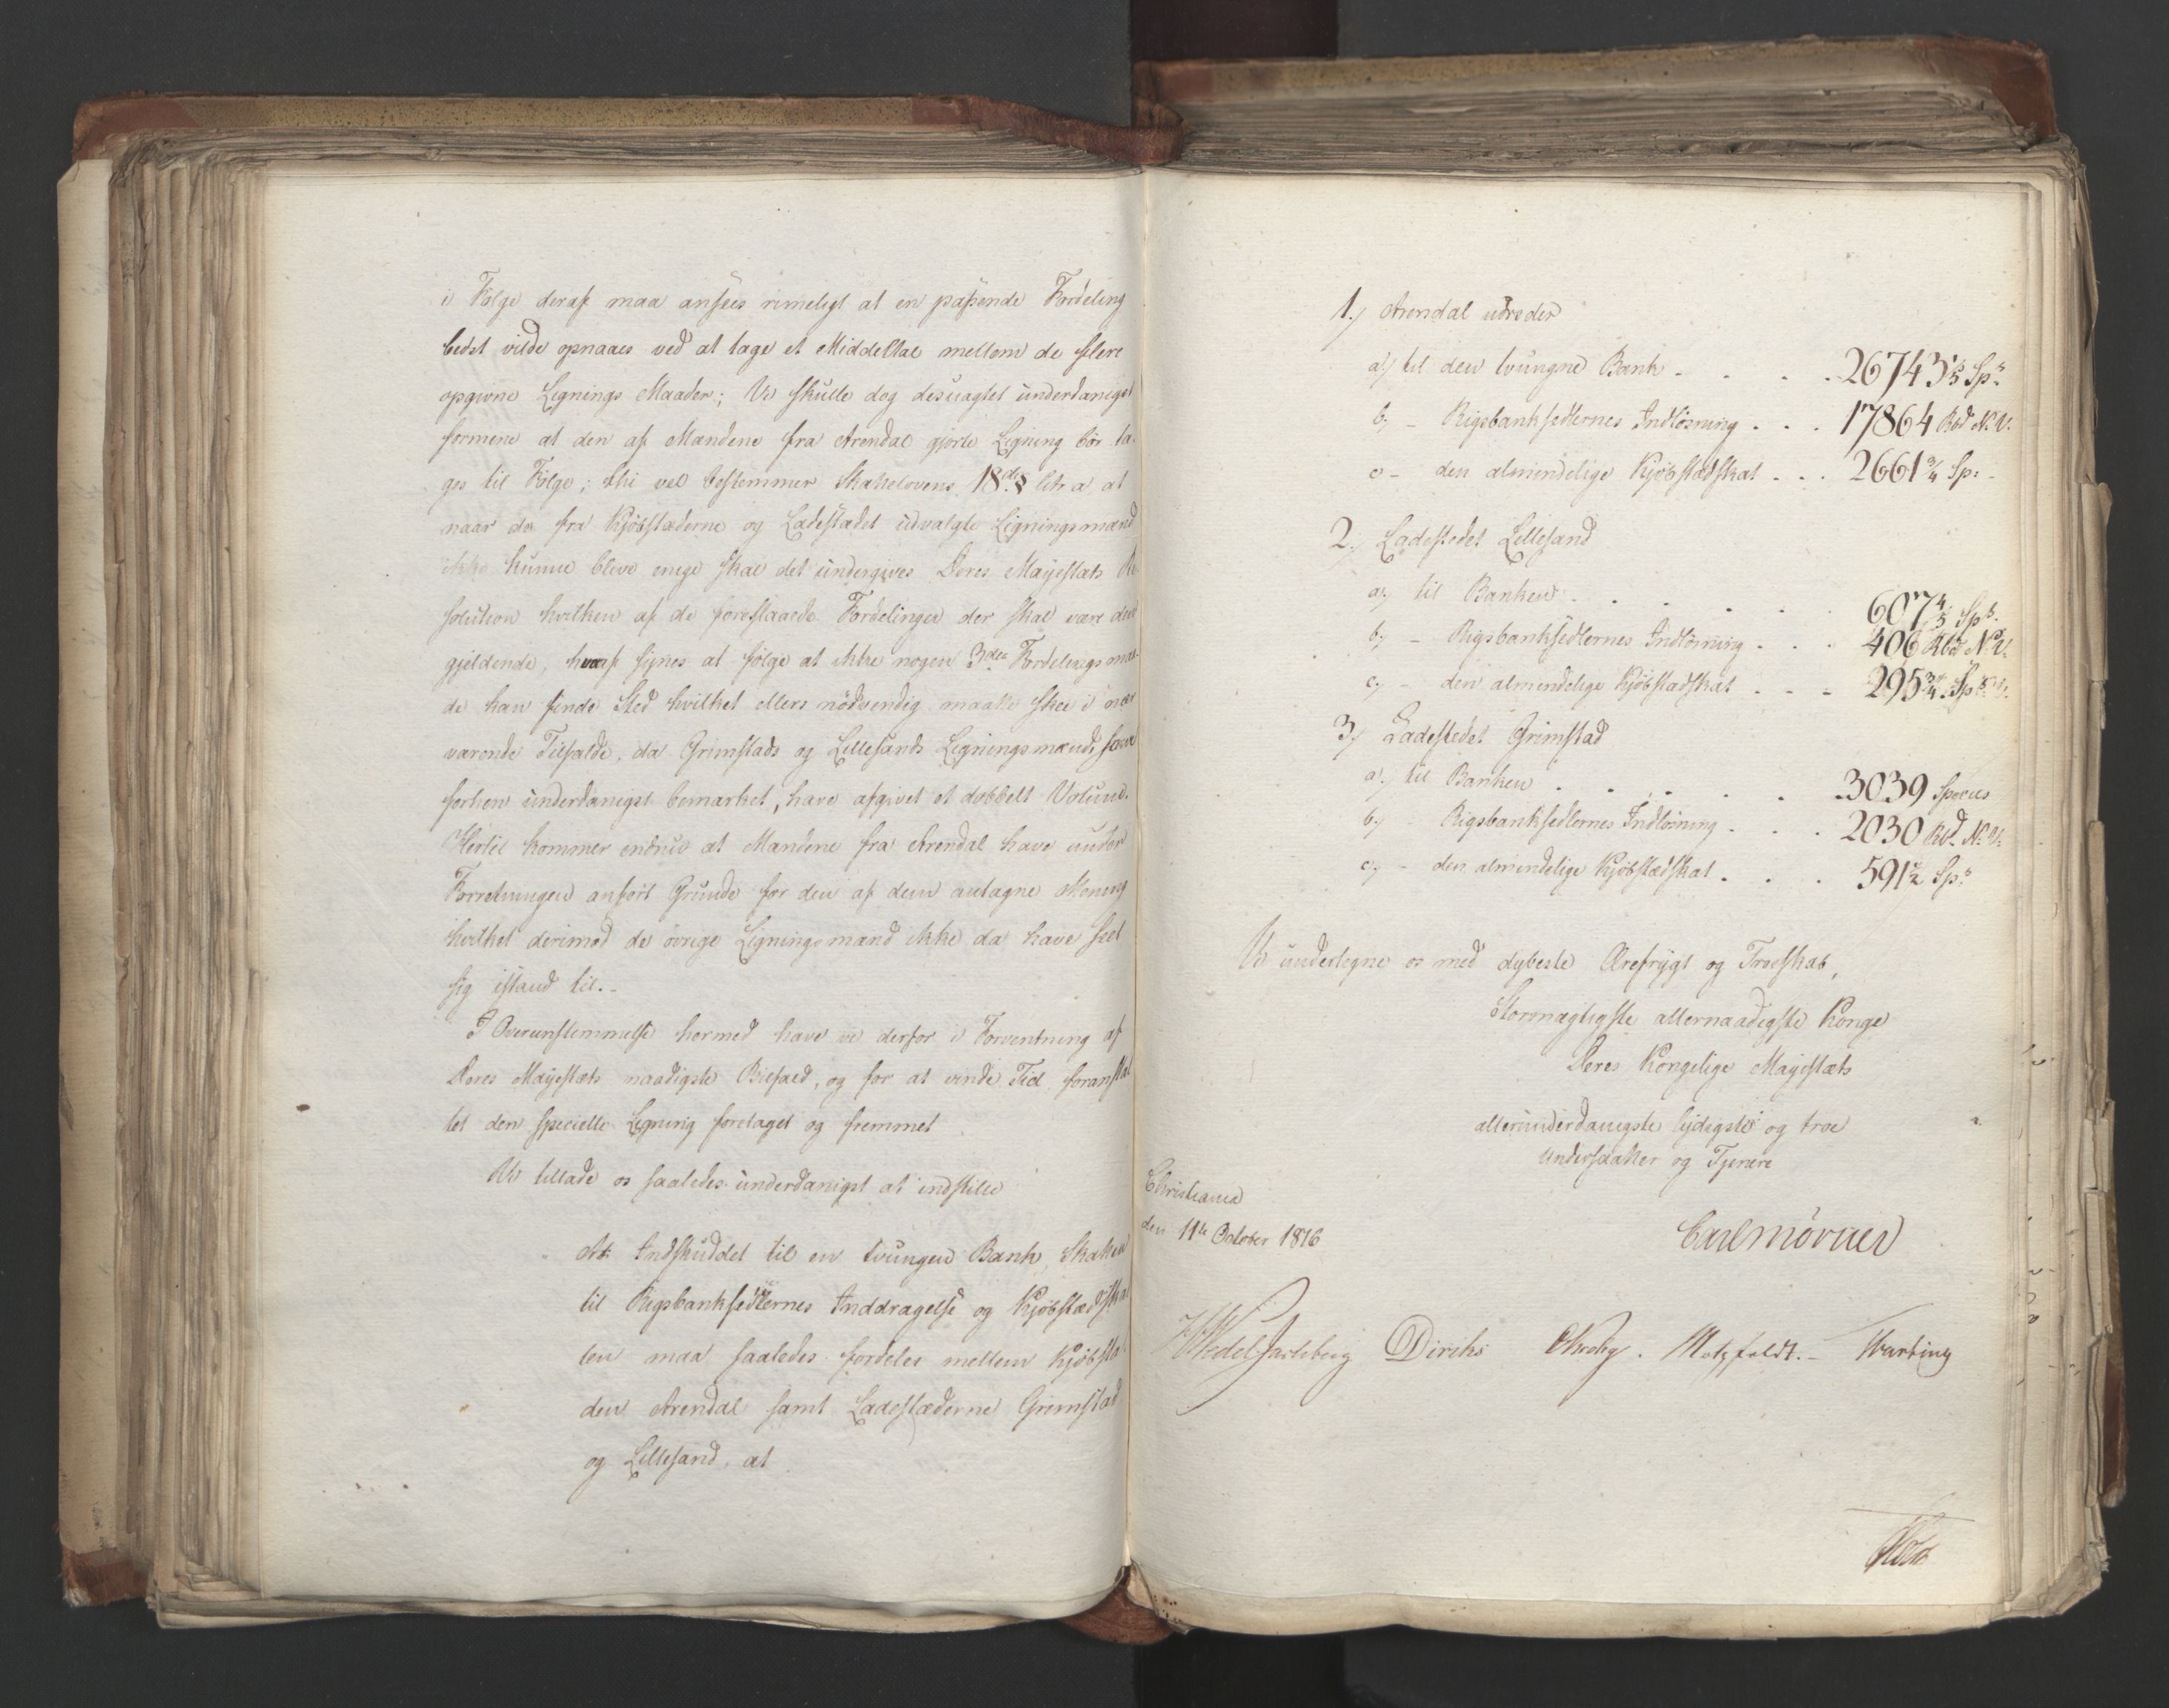 i Følge deraf maa ansees rimeligt at en passende Fordeling
bedst vilde opnaaes ved at tage et Middeltal mellem de flere
opgivne Lignings Maader; Vi skulle dog desuagtet underdanigst
formene at den af Mændene fra Arendal gjorte Ligning bør ta-
ges til Følge; thi vel bestemmer Skattelovens 18de § Litr a at
naar de fra Kjøbstæderne og Ladestædet udvalgte Ligningsmænd
ikke kunne blive enige skal det undergives Deres Mayestæts Re-
solution hvilken af de foreslaaede Fordelinger der skal være den
gjeldende, hvoraf synes at følge at ikke nogen 3die Fordelingsmaa-
de kan finde Sted hvilket ellers nødvendig maatte skee i nær
værende Tilfælde, da Grimstads og Lillesands Ligningsmænd, som
forhen underdanigst bemærket, have afgivet et dobbelt Votum.
Hertil kommer endnu at Mændene fra Arendal have under
Forretningen anført Grunde for den af dem antagne Mening
hvilket derimod de øvrige Ligningsmænd ikke da have seet
sig istand til.-
I Overeenstemmelse hermed have vi derfor i Forventning af
Deres Mayestæts naadigste Bifald, og for at vinde Tid foranstal
tet den specielle Ligning foretaget og fremmet
Vi tillade os saaledes underdanigst at indstille
At Indskuddet til en tvungen Bank, Skatten
til Rigsbanksedlernes Inddragelse og Kjøbstædska
ten maa saaledes fordeles mellem Kjøbsta
den Arendal samt Ladestæderne Grimstad
og Lillesand, at
1.) Arendal udreder
a) til den tvungne Bank - . . . 26743 1/5 Sps
b) - Rigsbanksedlernes Indløsning . . . 17864 Rbd N.V.
c - den almindelige Kjøbstædskat . . . 2661 3/4 Sp: -
2.) Ladestedet Lillesand
a) til Banken . . . . . 607 4/5 Sps.
b) - Rigsbanksedlernes Indløsning . . . 406 Rbd N.V.
c) - den almindelige Kjøbstadskat . . . 295 3/4 Sps
3.) Ladestedet Grimstad
a) til Banken . . . . . 3039 Species
b) - Rigsbanksedlernes Indløsning . . . 2030 Rbd. N.V.
c) - den almindelige Kjøbstædskat . . . 591 1/2 Sps
Vi undertegne os med dybeste Ærefrygt og Troeskab,
Stormægtigste allernaadigste Konge
Deres Kongelige Mayestæts
allerunderdanigste lydigste og troe
Undersaatter og Tjenere
Christiania
den 11te October 1816
Carl Mörner
HWedel Jarlsberg Diriks Krohg . Motzfeldt. -